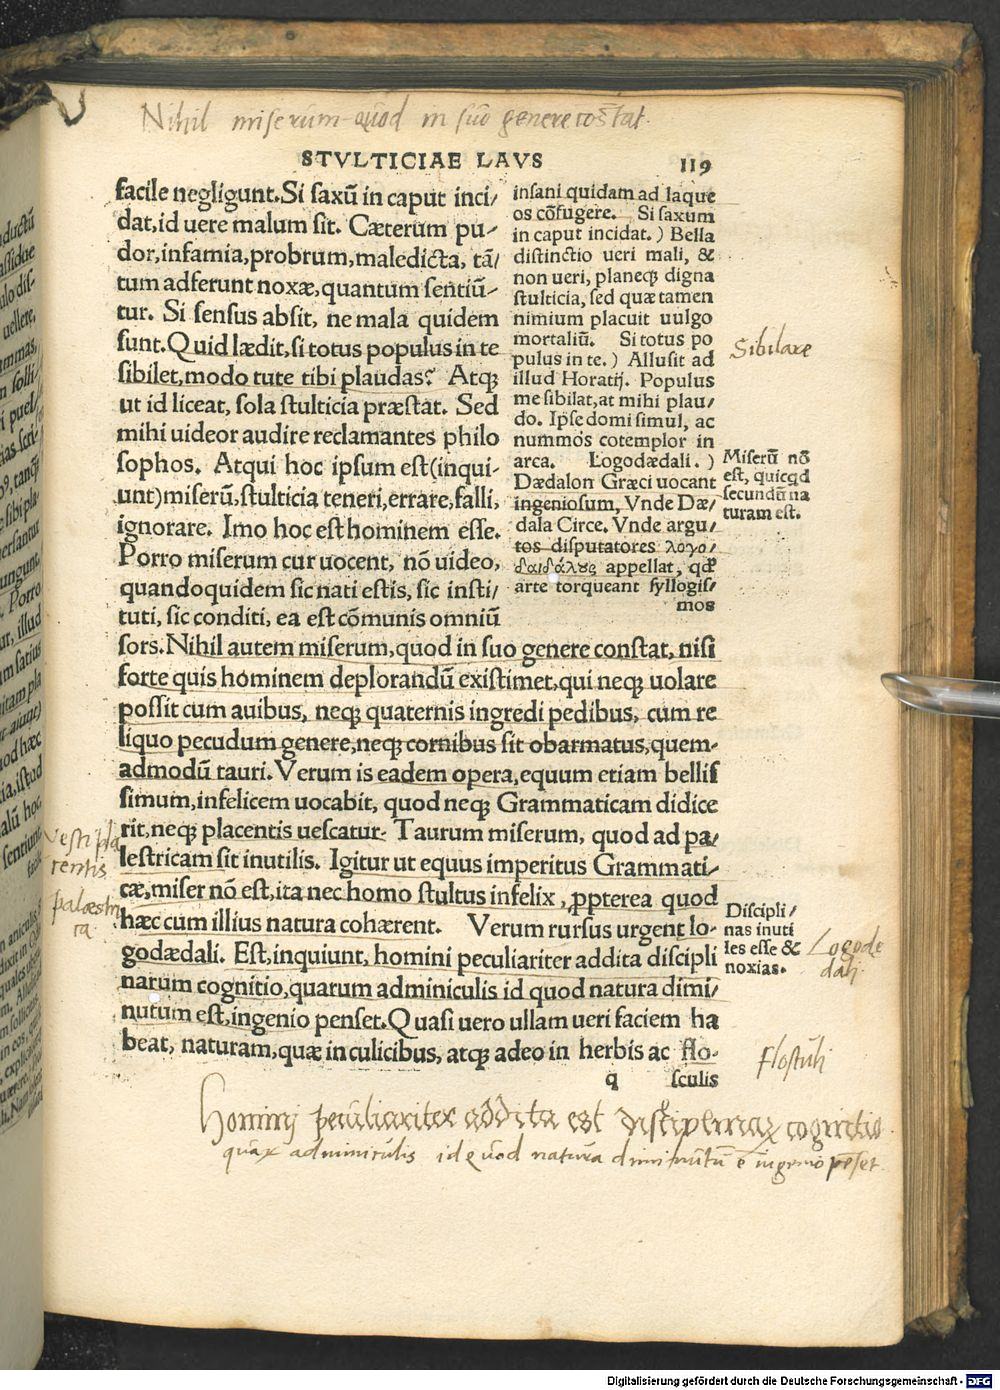 Nihil miserum quod in suo genere constat.
STVLTICIAE LAVS 119
facile negligunt. Si saxũ in caput inci/
dat, id uere malum sit. Cæterum pu-
dor, infamia, probrum, maledicta, tã/
tum adferunt noxæ, quantum sentiũ-
tur. Si sensus absit, ne mala quidem
sunt. Quid lædit, si totus populus in te
sibilet, modo tute tibi plaudas? Atq;
ut id liceat, sola stulticia præstat. Sed
mihi uideor audire reclamantes philo
sophos. Atqui hoc ipsum est (inqui-
unt) miserũ, stulticia teneri, errare, falli,
ignorare. Imo hoc est hominem esse.
Porro miserum cur uocent, nõ uideo,
quandoquidem sic nati estis, sic insti/
tuti, sic conditi, ea est cõmunis omniũ
sors. Nihil autem miserum, quod in suo genere constat, nisi
forte quis hominem deplorandũ existimet, qui neq; uolare
possit cum auibus, neq; quaternis ingredi pedibus, cum re
liquo pecudum genere, neq; cornibus sit obarmatus, quem-
admodũ tauri. Verum is eadem opera, equum etiam bellis
simum, infelicem uocabit, quod neq; Grammaticam didice
rit, neq; placentis uescatur. Taurum miserum, quod ad pa/
lestricam sit inutilis. Igitur ut equus imperitus Grammati/
cæ, miser nõ est, ita nec homo stultus infelix, ꝓpterea quod
hæc cum illius natura cohærent. Verum rursus urgent lo-
godædali. Est, inquiunt, homini peculiariter addita discipli
narum cognitio, quarum adminiculis id quod natura dimi/
nutum est, ingenio penset. Quasi uero ullam ueri faciem ha
beat, naturam, quæ in culicibus, atq; adeo in herbis ac flo-
q sculis
insani quidam ad laque
os cõfugere. Si saxum
in caput incidat.) Bella
distinctio ueri mali, &
non ueri, planeq; digna
stulticia, sed quæ tamen
nimium placuit uulgo
mortaliũ. Si totus po
pulus in te.) Allusit ad
illud Horatij. Populus
me sibilat, at mihi plau/
do. Ipse domi simul, ac
nummos cotemplor in
arca. Logodædali.)
Dædalon Græci uocant
ingeniosum, Vnde Dæ/
dala Circe. Vnde argu/
tos disputatores λογο/
δαιδάλους appellat, qđ
arte torqueant syllogis/
mos
Sibilare
Miserũ nõ
est, quicqd
secundũ na
turam est.
palæstri
ca
Discipli/
nas inuti
les esse &
noxias.
Logodę
dali
flosculi
Homini peculiariter addita est disciplinaꝝ cognitio
quaꝝ adminiculis id quod natura diminutũ ẽ ingenio pẽset.
Digitalisierung gefördert durch die Deutsche Forschungsgemeinschaft - DFG